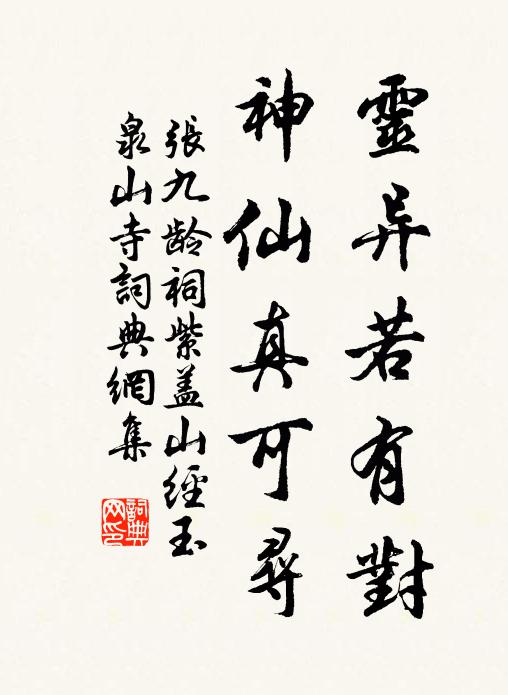 靈异若有對
神仙真可尋
張九龄祠紫盖山經玉
泉山寺詞典網集
詞典网印